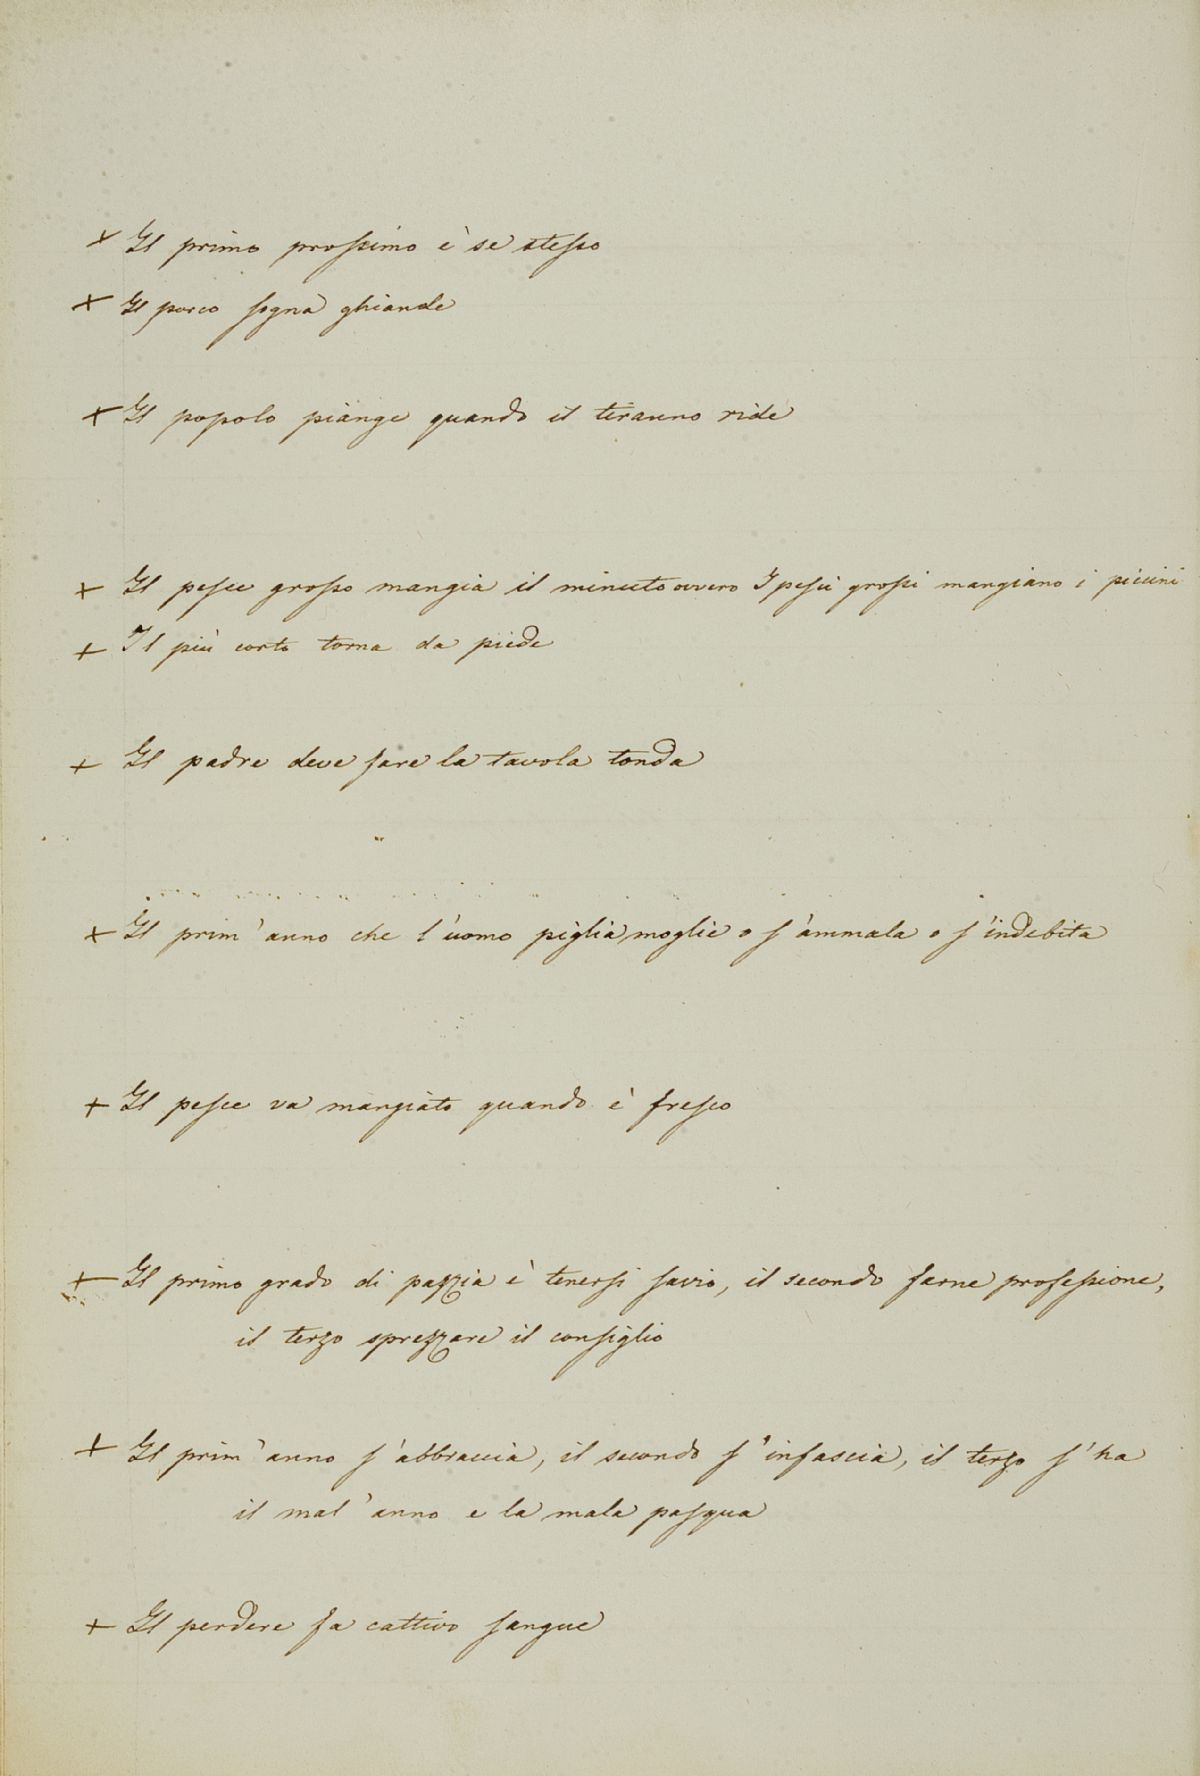 + Il primo prossimo è se stesso
+ Il porco sogna ghiande
+ Il popolo piange quando il tiranno ride
+ Il pesce grosso mangia il minuto ovvero I pesci grossi mangiano i piccini
+ Il più corto torna da piede
+ Il padre deve fare la tavola tonda
+ Il prim'anno che l'uomo piglia moglie o s'ammala o s'indebita
+ Il pesce va mangiato quando è fresco
+ Il primo grado di pazzia è tenersi savio, il secondo farne professione,
il terzo sprezzare il consiglio
+ Il prim'anno s'abbraccia, il secondo s'infascia, il terzo s'ha
il mal'anno e la mala pasqua
+ Il perdere fa cattivo sangue